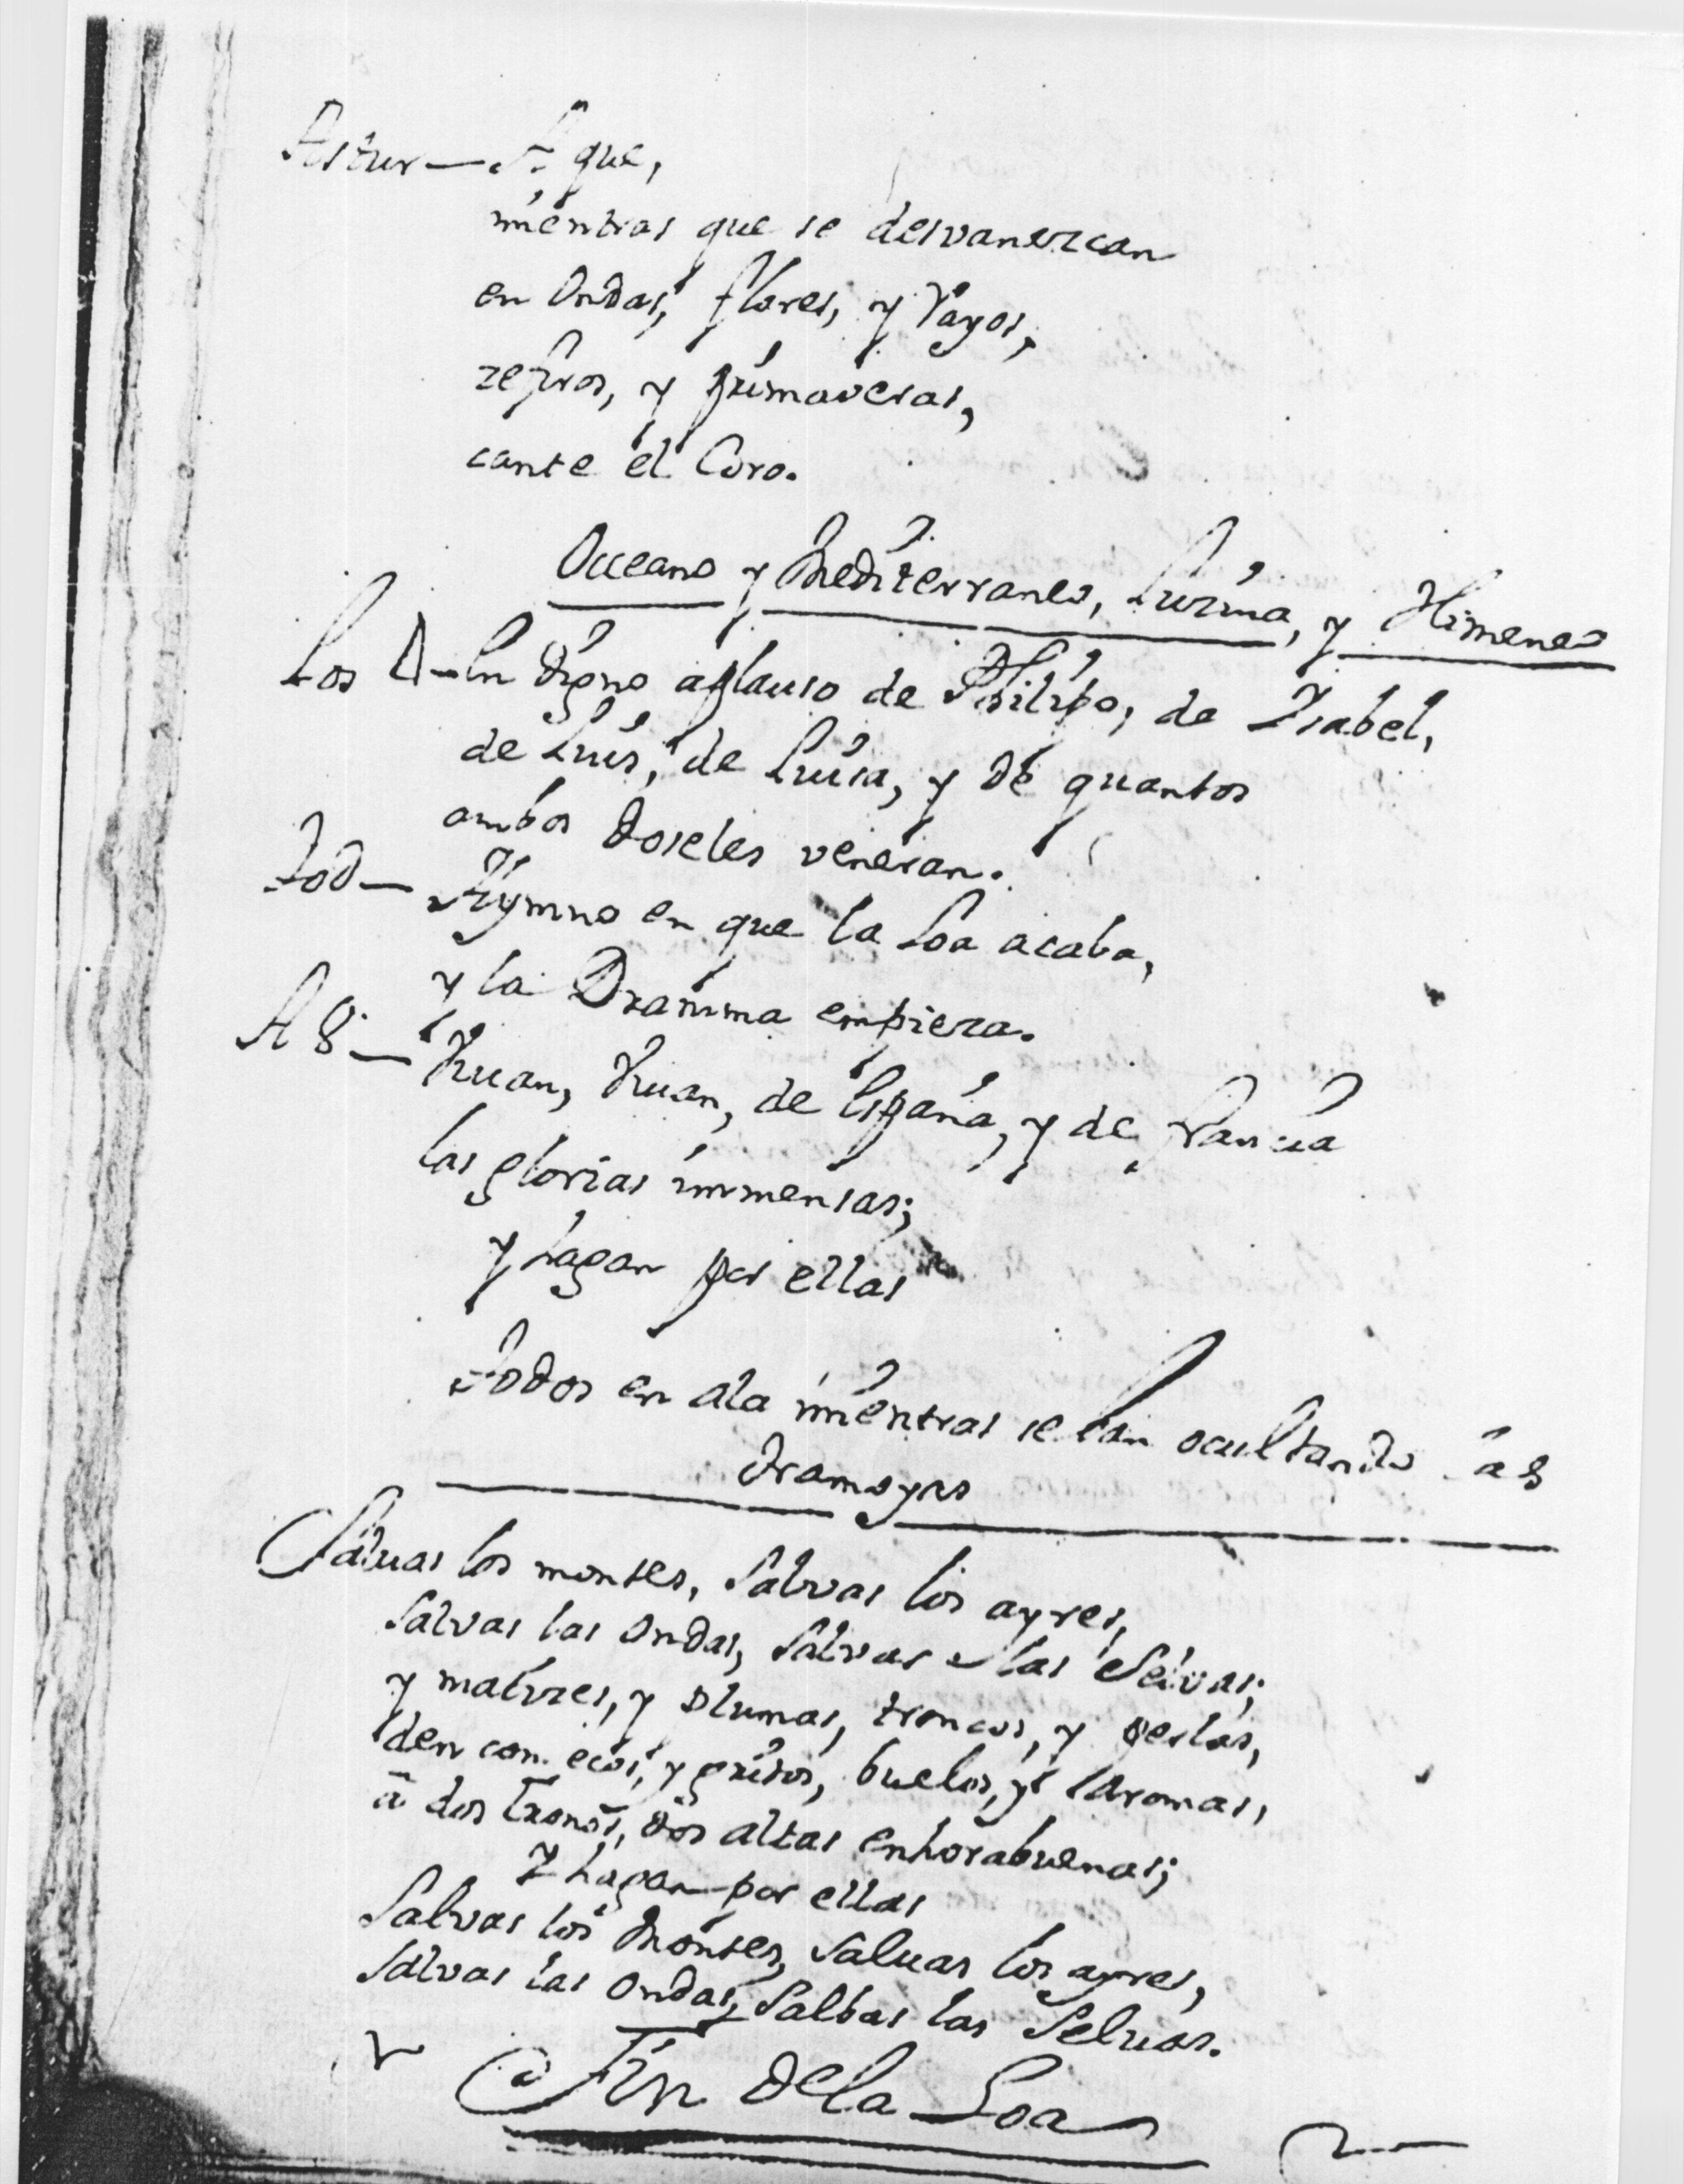 Astur — A que,
mientras que se desvanezcan
en Ondas, flores, y rayos,
zefiros, y primaveras,
cante el Coro.
Occeano y Mediterraneo, Luzina, y Himeneo
Los 4 — En digno aplauso de Philipo, de Isabel,
de Luis, de Luisa, y de quantos
ambos doseles veneran.
Tod — Hymno en que la Loa acaba,
y la Dramma empieza.
A 8 — Vivan, Vivan, de España, y de francia
las glorias immensas;
y hagan por ellas
Todos en ala mientras se ban ocultando las
tramoyas
Salvas los montes, Salvas los ayres,
Salvas las Ondas, Salvas las Selvas;
y matizes, y plumas, troncos, y perlas,
den con ecos, y gritos, buelos, y Aromas,
a dos tronos, dos altas enhorabuenas;
Y hagan por ellas
Salvas los Montes, Saluas los ayres,
Salvas las Ondas, Salbas las Seluas.
Fin de la Loa